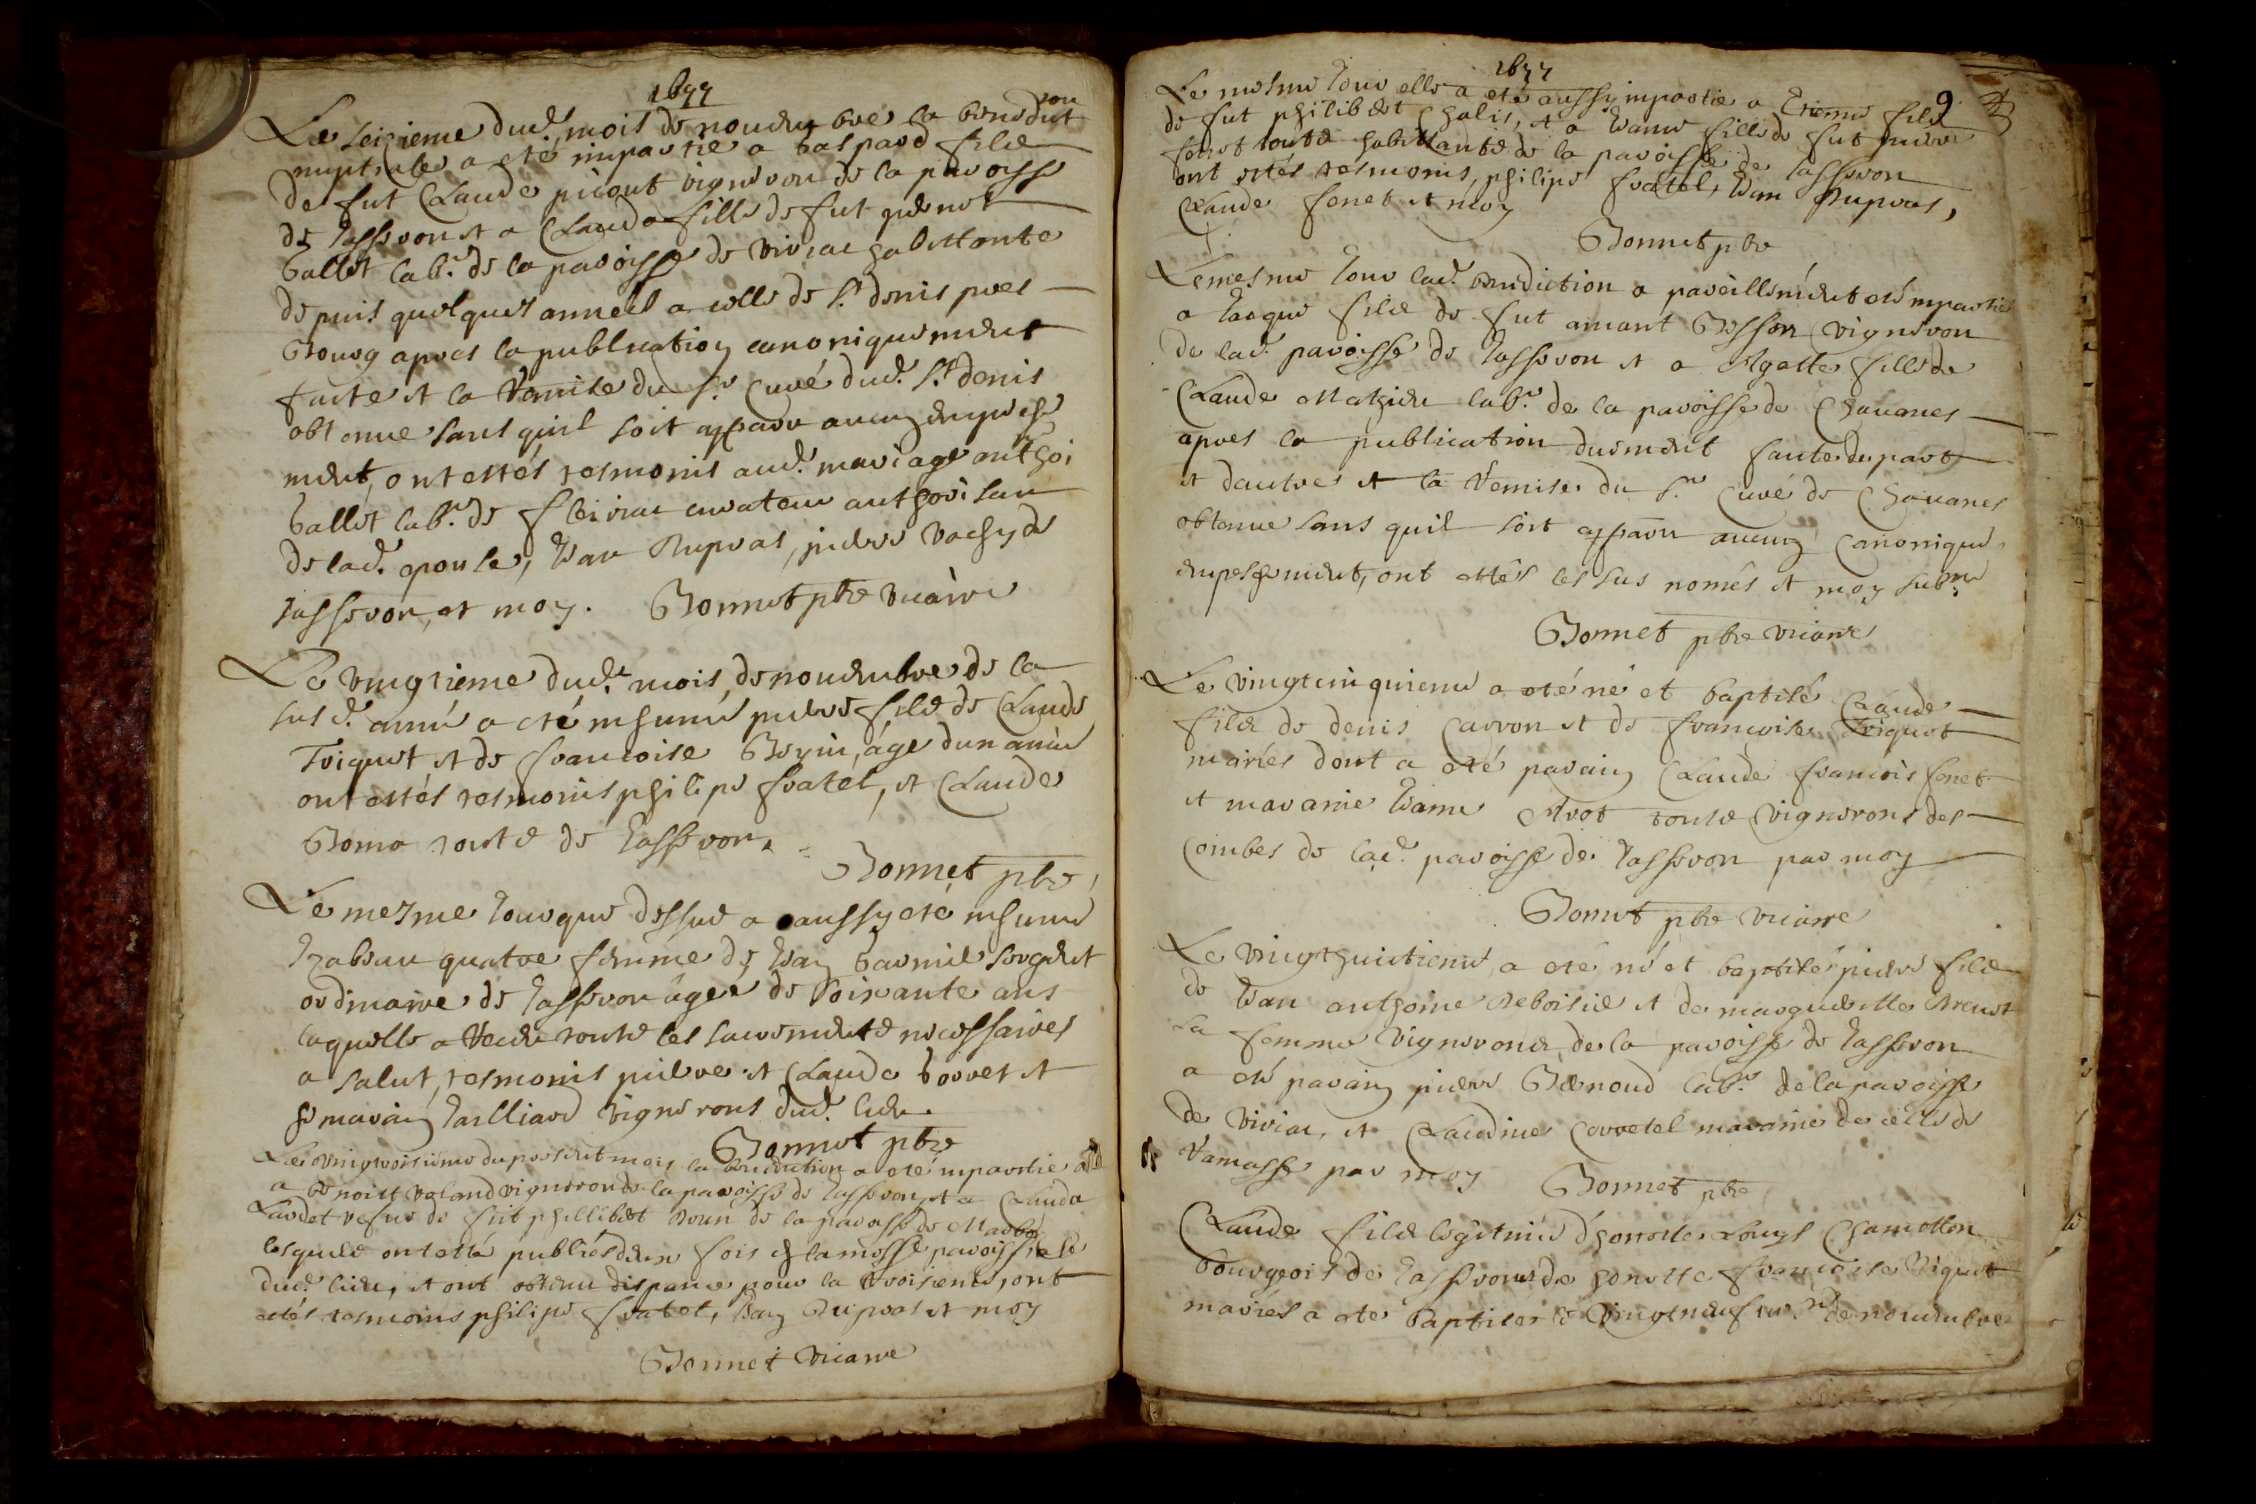 1677
Le seizieme dud. mois de nouembre la benediction
nuptiale a eté impartie a Gaspard fils
de fut Claude picout vigneron de la paroisse
de Jasseron et a Claude fille de fut pernet
Gallet lab.r de la paroisse de viriac habittante
depuis quelques anneés a celle de S.t denis pres
Bourg apres la publication canoniquement
faite et la Remise du s.r curé dud. S.t denis
obtenue sans quil soit apparu aucun empesche
ment, ont estés tesmoins aud. mariage anthoi
Gallet lab.r de fleiriac curateur authorisan
de lad. epouse, Jean Dupras, pierre vachy de
Jasseron, et moy. Bonnet ptre vicaire
Le vingtieme dud. mois de nouembre de la
susd. anné a eté inhumé pierre fils de Claude
Triquet et de francoise Boyin, âge dun année
ont estés tesmoins philipe fratel, et Claude
Boma touts de Jasseron.
Bonnet ptre
Le mesme Jour que dessus a aussy eté inhumé
Izabeau quatre femme de Jean Darmil sergent
ordinaire de Jasseron âgee de soixante ans
laquelle a Receu touts les sacrements necessaires
a salut, tesmoins pierre et Claude borret et
germain Jaillard vignerons dud. lieu.
Bonnet ptre
Le vingtroisieme du present mois la benediction a eté impartie
a benoitt Roland vigneron de la paroisse de Jasseron, et a Clauda
Laudet vefue de fut phillibert Brun de la paroisse de Marbo
lesquels ont esté publiés deux fois en la messe paroissiale
dud. lieu, et ont obtenu dispance pour la troisieme, ont
estés tesmoins philipe fratel, Jean Dupras et moy
Bonnet vicaire
1677
9
Le mesme Jour elle a eté aussy impartie a Etienne fils
de fut philibert Chalis, et a Jeanne fille de fut pierre
fenet touts habittants de la paroisse de Jasseron
ont estés tesmoins, philipe fratel, Jean Dupras,
Claude fenet et moy
Bonnet ptre
Le mesme Jour lad. benediction a pareillement eté impartie
a Jacque fils de fut amant Besson vigneron
de lad. paroisse de Jasseron et a Agatte fille de
Claude Mathieu lab.r de la paroisse de Chauanes
apres la publication duement faite de part
et dautre et la Remise du s.r curé de Chauanes
obtenue sans quil soit apparu aucun canonique
empeschement, ont estés les sus només et moy
Bonnet ptre vicaire
Le vingtcinquieme a eté né et baptisé Claude
fils de denis Carron et de francoise Triquet
mariés dont a eté parain Claude francois fenet
et maranie Jeanne Arot touts vignerons des
combes de lad. paroisse de Jasseron par moy
Bonnet ptre vicaire
Le vingthuictieme a eté né et baptisé pierre fils
de Jean anthoine Reboisie et de margueritte Brenet
sa femme vignerons de la paroisse de Jasseron
a eté parain pierre Bernoud lab.r de la paroisse
de viriac, et Claudine Corretel maranie de celle de
Ramasse par moy Bonnet ptre
Claude fils legitime d'honorte Louys Chamotton
bourgeois de Jasseron et de honette francoise Riquet
mariés a eté baptisé le vingtneufieme de nouembre